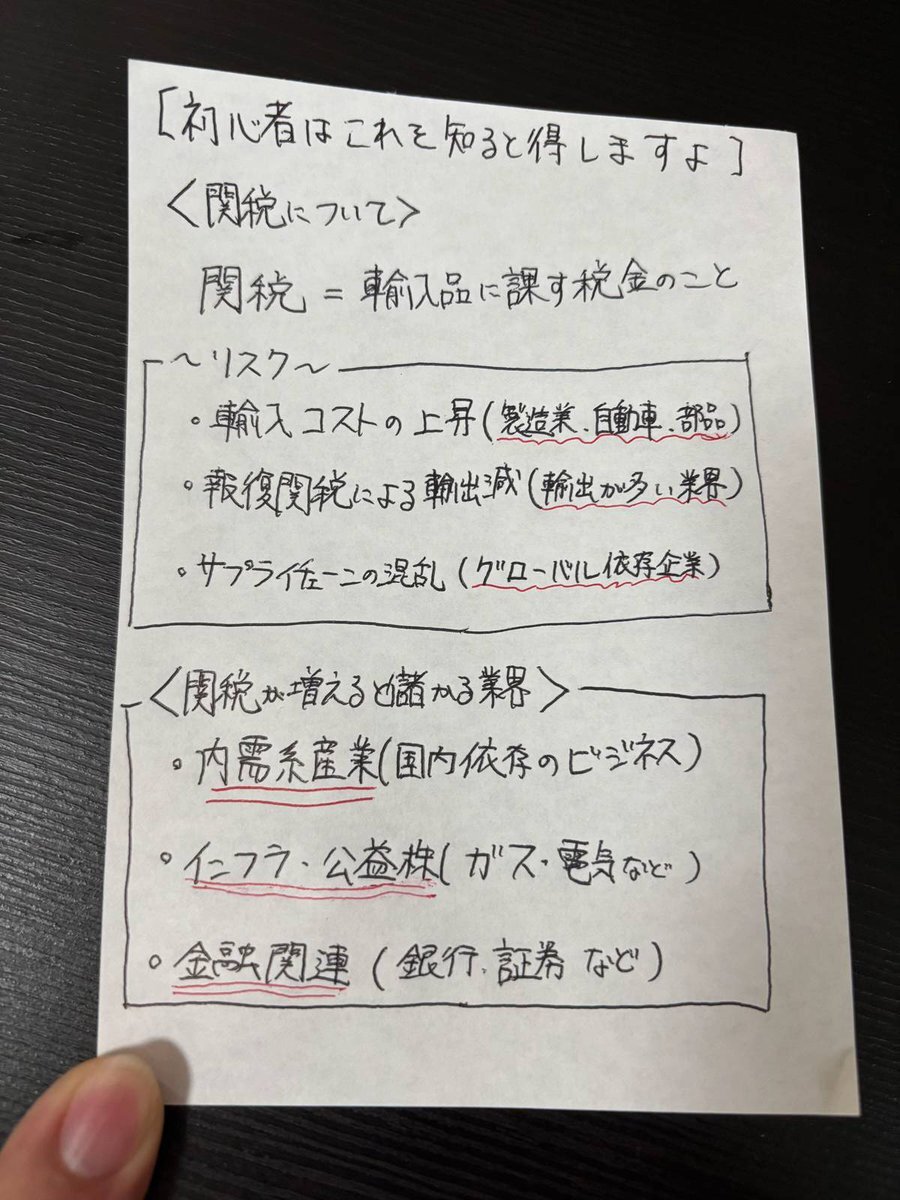 [初心者はこれを知ると得しますよ]
<関税について>
関税 = 輸入品に課す税金のこと
~リスク~
・輸入コストの上昇(製造業、自動車、部品)
・報復関税による輸出減(輸出が多い業界)
・サプライチェーンの混乱(グローバル依存企業)
<関税が増えると儲かる業界>
・内需系産業(国内依存のビジネス)
・インフラ・公益株(ガス・電気など)
・金融関連(銀行、証券など)